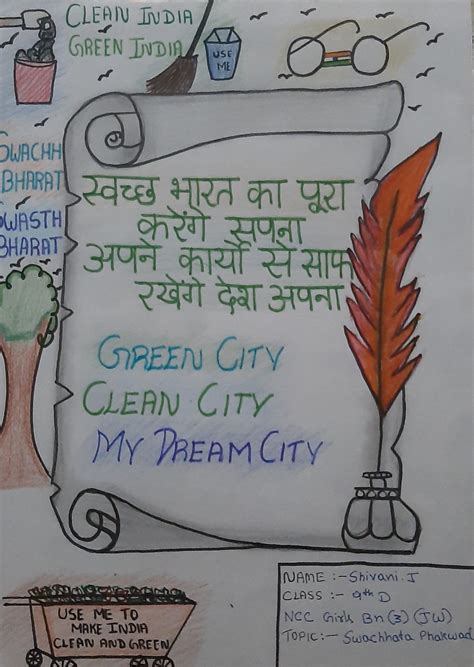 CLEAN INDIA
GREEN INDIA
USE
ME
SWACHH
BHARAT
SWASTH
BHARAT
स्वच्छ भारत का पूरा
करेंगे सपना
अपने कार्यो से साफ
रखेगे देश अपना
GREEN CITY
CLEAN CITY
MY DREAM CITY
USE ME TO
MAKE INDIA
CLEAN AND GREEN
NAME :- Shivani.J
CLASS :- 9th D
NCC Girls Bn (3) (JW)
TOPIC:- Swachhata Phakwad